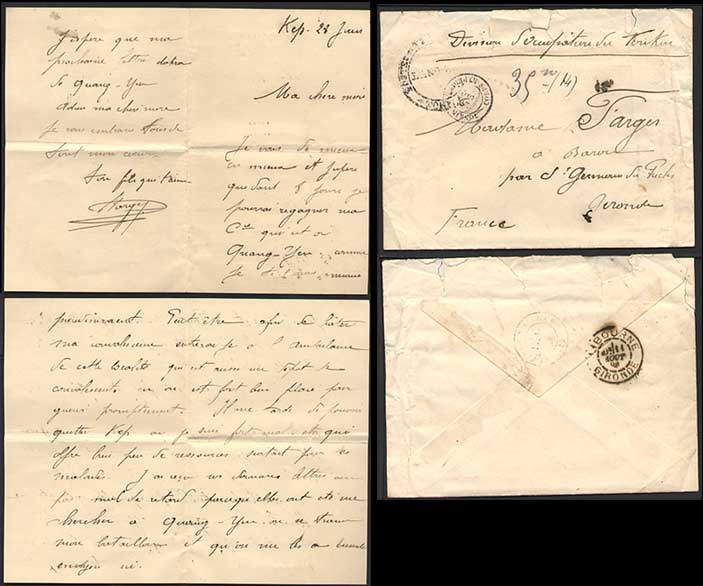 Kep. 28 Juin
Ma chère mère
Je vais de mieux
en mieux et j'espère
que dans 8 jours je
pourrai regagner ma
Cie qui est à
Quang-Yen comme
je
provisoirement. Peut être afin de hâter
ma convalescence entrerai je à l'ambulance
de cette localité qui est aussi un dépôt de
convalescents où on est fort bien placé pour
guérir promptement. Il me tarde de pouvoir
quitter Kep où je suis fort mal et qui
offre bien peu de ressources surtout pour les
malades. J'ai reçu vos dernières lettres un
peu de retard parceque elles ont été me
chercher à Quang-Yen où se trouve
mon bataillon et qu'on me les a
envoyées ici.
J'espère que ma
prochaine lettre datera
de Quang-Yen
Adieu ma chère mère
Je vous embrasse tous de
tout mon coeur
Ton fils qui t'aime
Farges
Division d'occupation du Tonkin
Madame Farges
à
par St Germain du Puch
Gironde
France
LIBOURNE
11
AOUT
GIRONDE